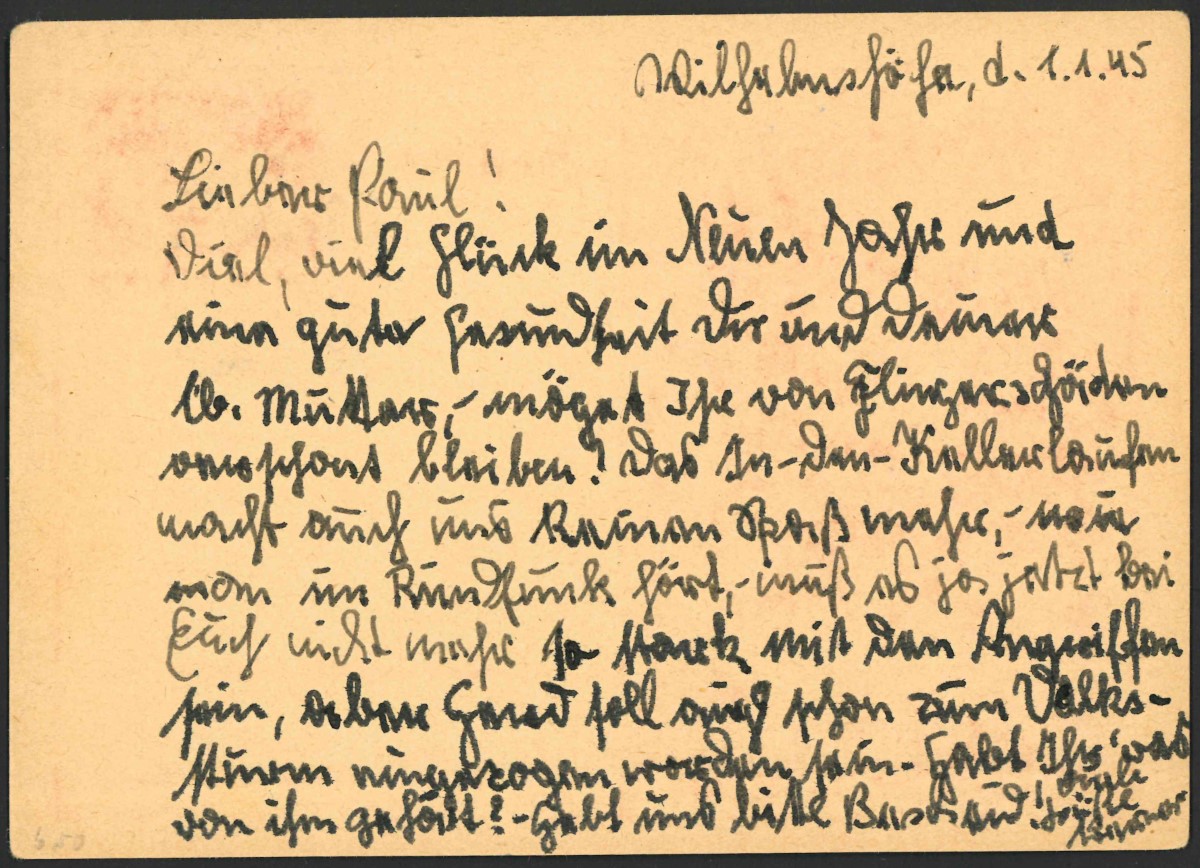 Wilhelmshöhe, d. 1.1.45
Lieber Paul!
Viel, viel Glück im Neuen Jahr und
eine gute Gesundheit Dir und Deiner
lb. Mutter, - möget Ihr von Fliegerschäden
verschont bleiben! Das In-den-Kellerlaufen
macht auch uns keinen Spaß mehr, - wie
man im Rundfunk hört, - muß es ja jetzt bei
Euch nicht mehr so stark mit den Angriffen
sein, aber Gerd soll auch schon zum Volks-
sturm eingezogen worden sein. - Habt Ihr was
von ihm gehört? - Gebt uns bitte Bescheid!
Grüße
650